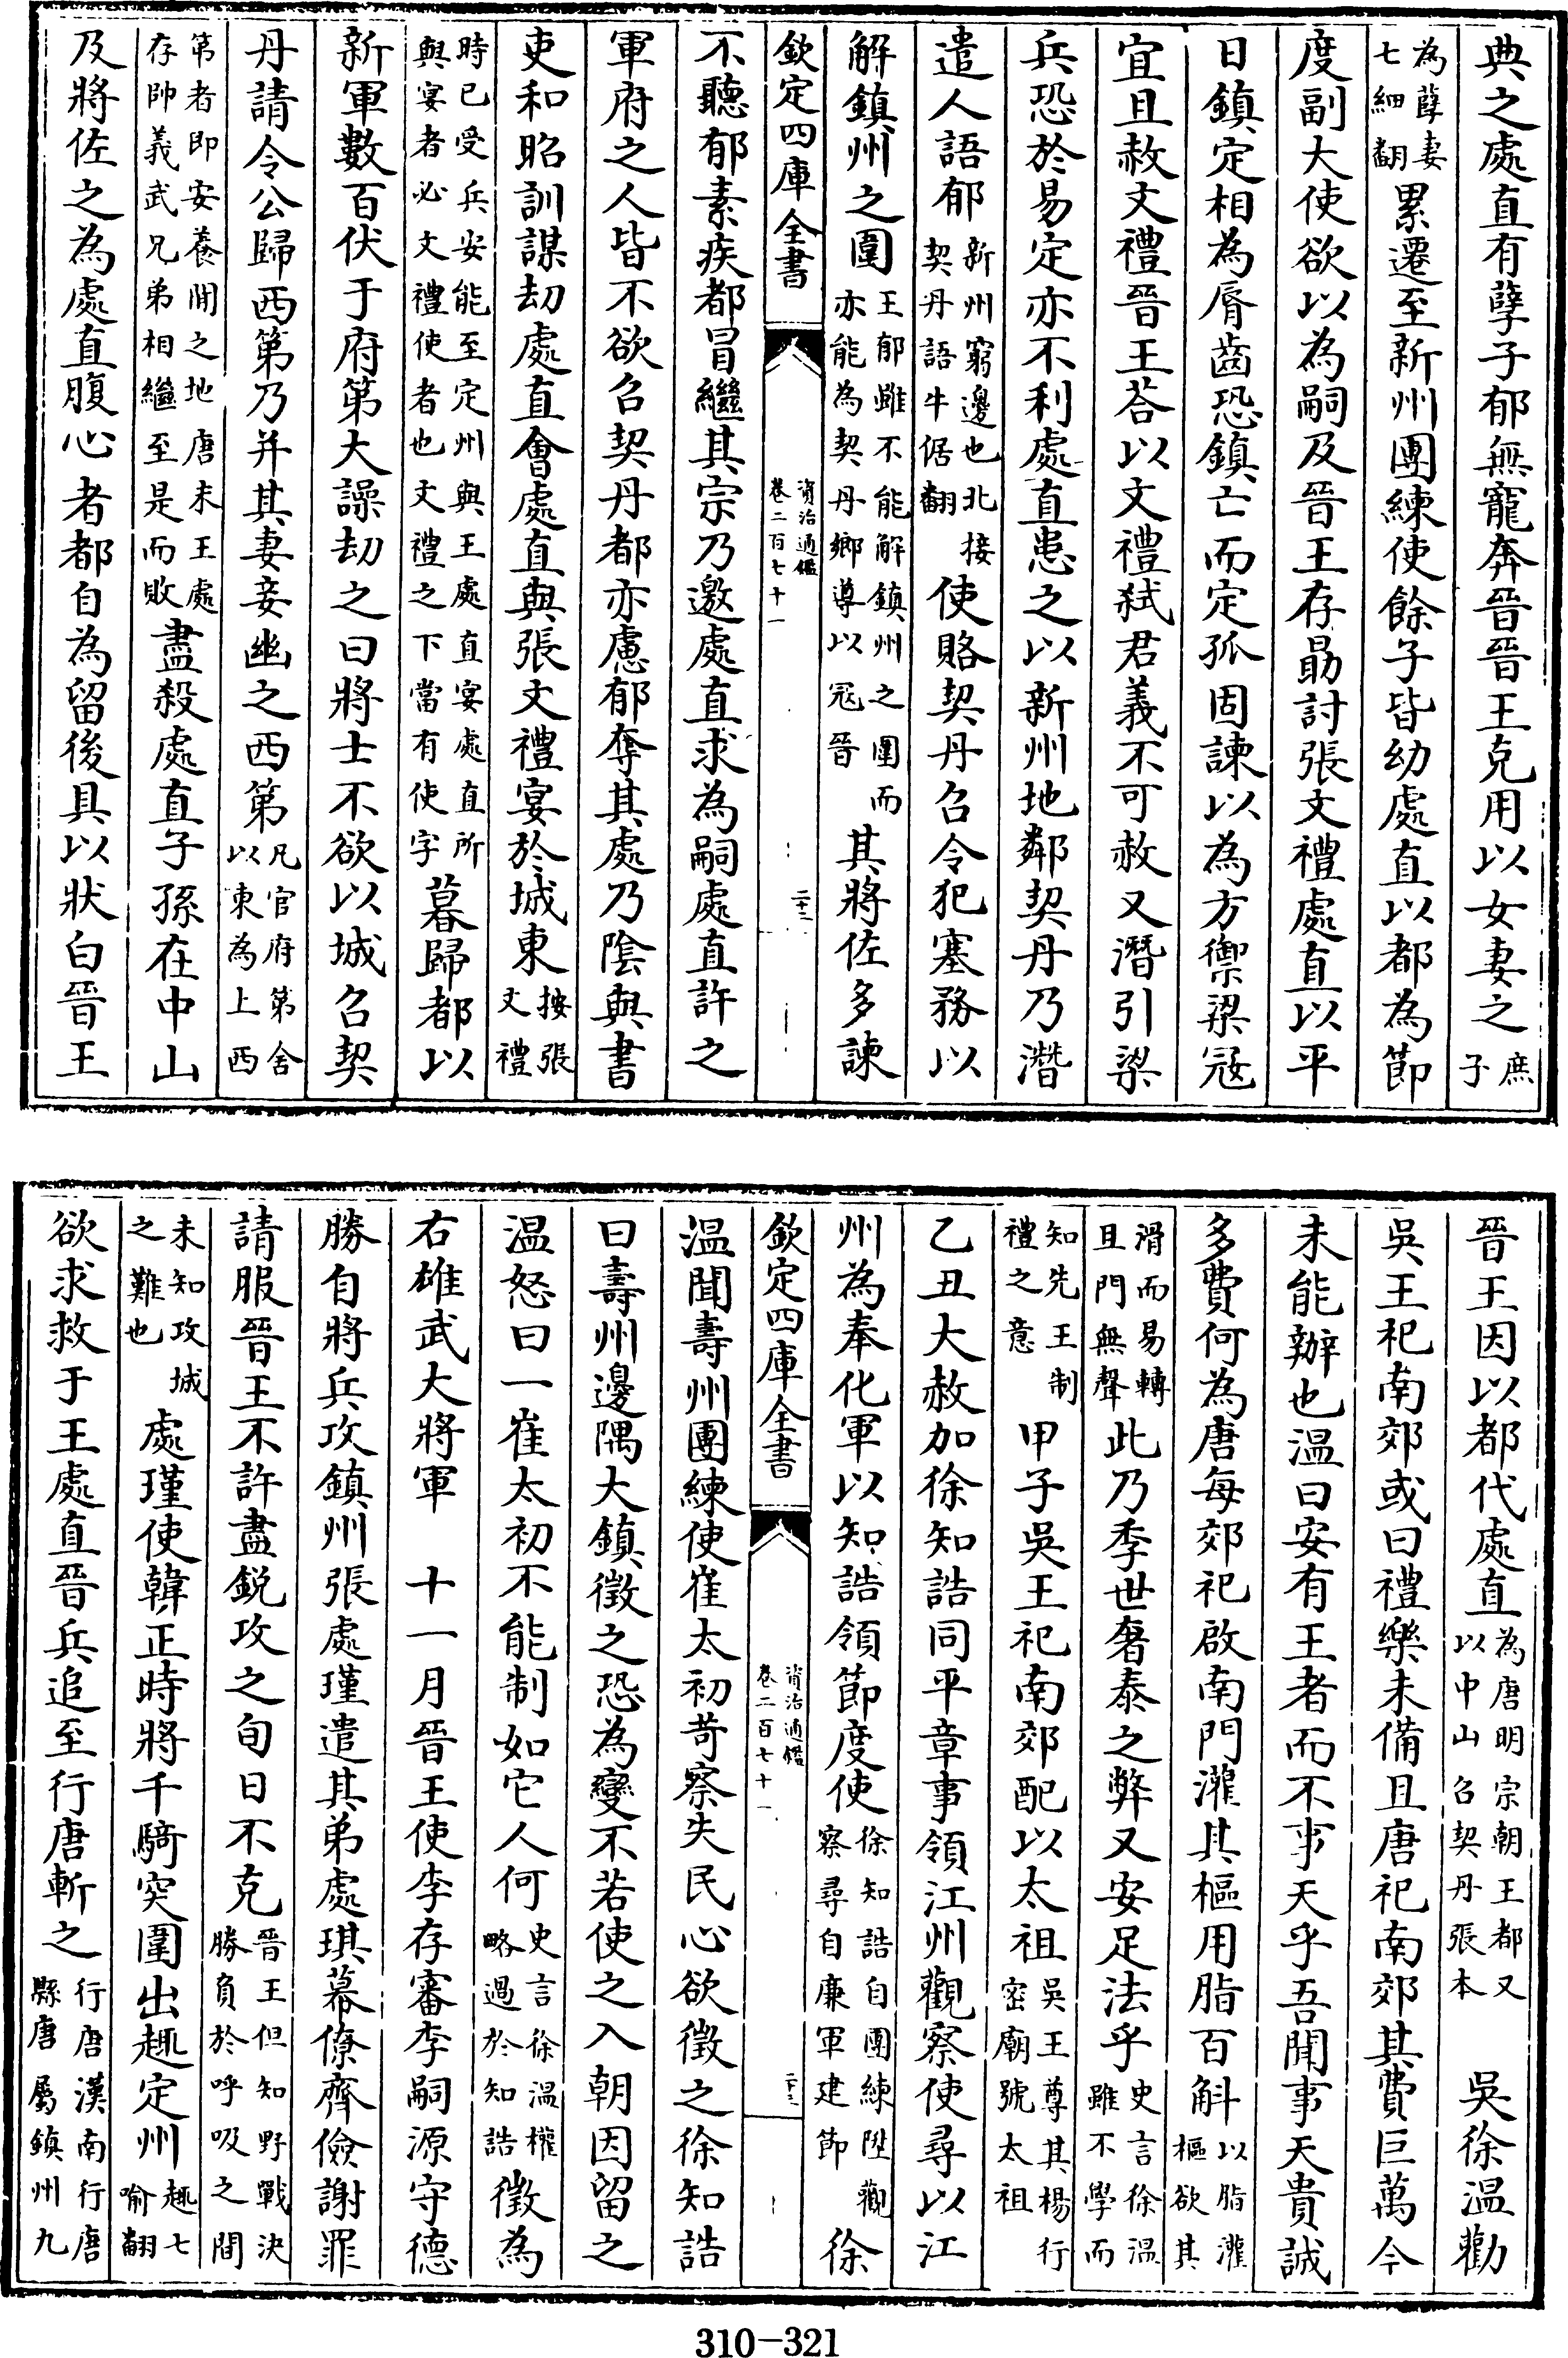 典之處直有孽子郁無寵奔晉晉王克用以女妻之庶子
為孽妻七細翻累遷至新州團練使餘子皆幼處直以都為節
度副大使欲以為嗣及晉王存勗討張文禮處直以平
日鎮定相為脣齒恐鎮亡而定孤固諫以為方禦梁寇
宜且赦文禮晉王荅以文禮弑君義不可赦又潛引梁
兵恐於易定亦不利處直患之以新州地鄰契丹乃潛
遣人語郁新州窮邊也北接契丹語牛倨翻使賂契丹召令犯塞務以
解鎮州之圍王郁雖不能解鎮州之圍而亦能為契丹鄉導以寇晉其將佐多諫
欽定四庫全書 資治通鑑卷二百七十一 二十二
不聽郁素疾都冒繼其宗乃邀處直求為嗣處直許之
軍府之人皆不欲召契丹都亦慮郁奪其處乃陰與書
吏和昭訓謀劫處直會處直與張文禮宴於城東按張文禮
時已受兵安能至定州與王處直宴處直所與宴者必文禮使者也文禮之下當有使字暮歸都以
新軍數百伏于府第大譟劫之曰將士不欲以城召契
丹請令公歸西第乃并其妻妾幽之西第凡官府第舍以東為上西
第者即安養閒之地唐末王處存帥義武兄弟相繼至是而敗盡殺處直子孫在中山
及將佐之為處直腹心者都自為留後具以狀白晉王
晉王因以都代處直為唐明宗朝王都又以中山召契丹張本 吳徐溫勸
吳王祀南郊或曰禮樂未備且唐祀南郊其費巨萬今
未能辦也溫曰安有王者而不事天乎吾聞事天貴誠
多費何為唐每郊祀啟南門灌其樞用脂百斛以脂灌樞欲其
滑而易轉且門無聲此乃季世奢泰之弊又安足法乎史言徐溫雖不學而
知先王制禮之意 甲子吳王祀南郊配以太祖吳王尊其楊行密廟號太祖
乙丑大赦加徐知誥同平章事領江州觀察使尋以江
州為奉化軍以知誥領節度使徐知誥自團練陞觀察尋自廉軍建節 徐
欽定四庫全書 資治通鑑卷二百七十一 二十三
溫聞壽州團練使崔太初苛察失民心欲徵之徐知誥
曰壽州邊隅大鎮徵之恐為變不若使之入朝因留之
溫怒曰一崔太初不能制如它人何史言徐溫權略過於知誥徵為
右雄武大將軍 十一月晉王使李存審李嗣源守德
勝自將兵攻鎮州張處瑾遣其弟處琪幕僚齊儉謝罪
請服晉王不許盡銳攻之旬日不克晉王但知野戰決勝負於呼吸之間
未知攻城之難也處瑾使韓正時將千騎突圍出趣定州趣七喻翻
欲求救于王處直晉兵追至行唐斬之行唐漢南行唐縣唐屬鎮州九
310-321